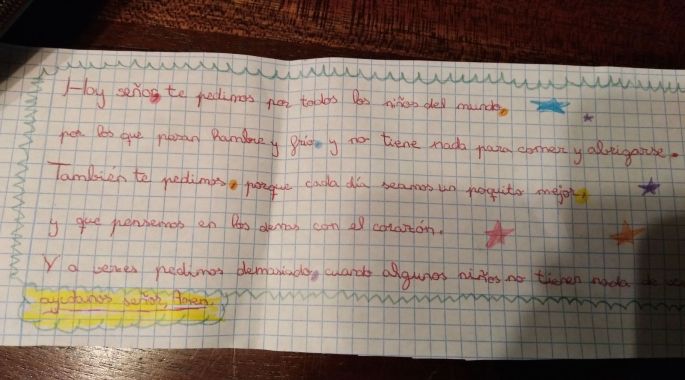 Hoy señor te pedimos por todos los niños del mundo,
por los que pasan hambre y frío, y no tiene nada para comer y abrigarse.
También te pedimos, porque cada día seamos un poquito mejor,
y que pensemos en los demas con el corazón.
Y a veces pedimos demasiado, cuando algunos niños no tienen nada de
ayudanos señor, Amen.